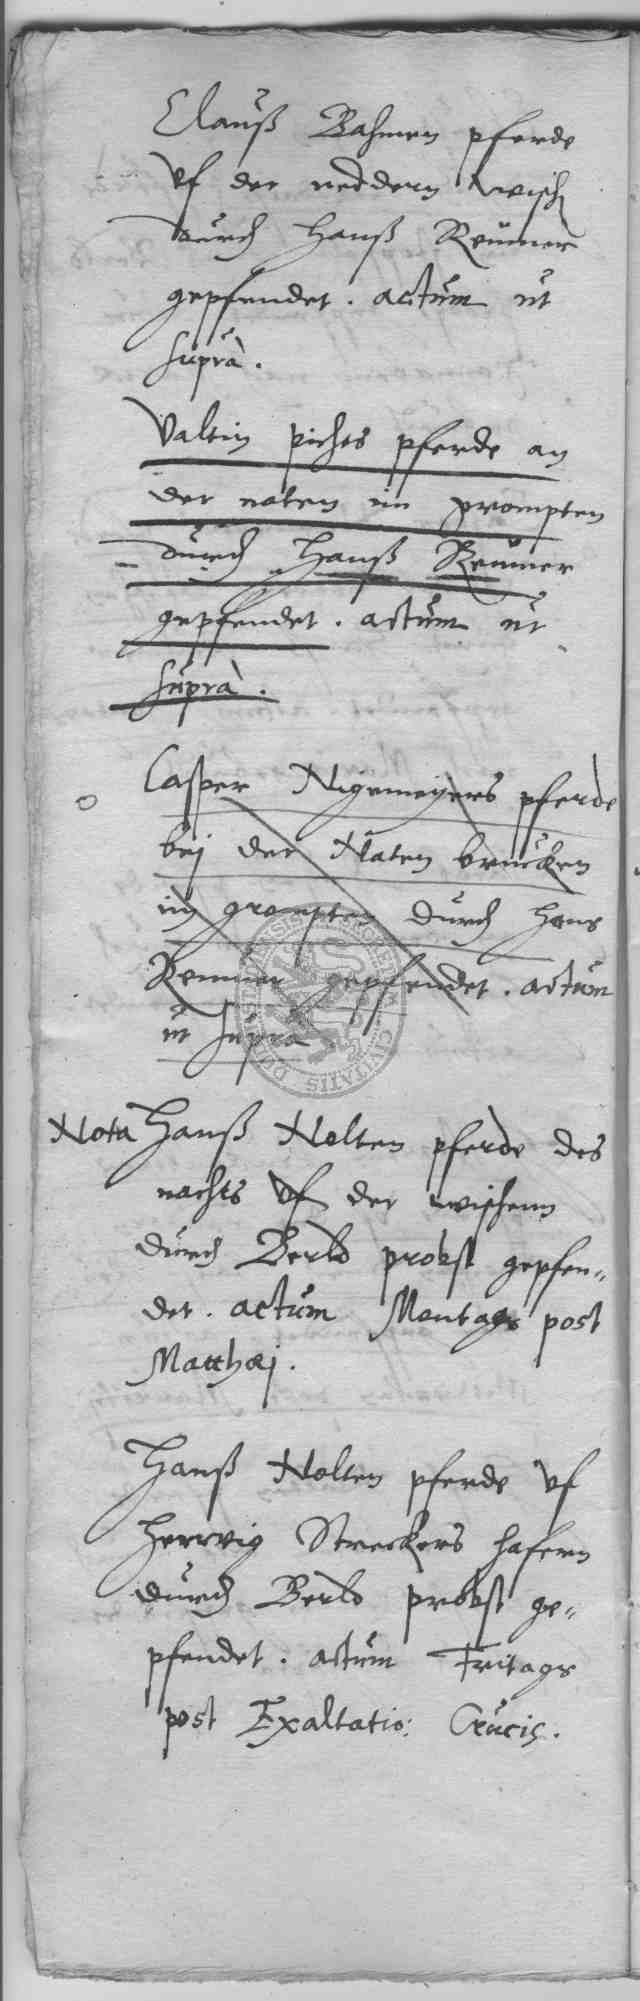 Clauß Bahmen pferde
vf der neddern wisch
durch Hanß Reumer
gepfendet. actum ut
suprà.
Valtin pichts pferde an
der naten im grompten
durch Hanß Reumer
gepfendet. actum ut
suprà.
Casper Nigemeyers pferde
bej der Naten brucken
im grompten durch Hans
Reumer gepfendet. actum
ut suprà
Nota Hanß Nolten pferde des
nachts vf der wischenn
durch Berld probst gepfen„
det. actum Montags post
Matthæj.
Hanß Nolten pferde vf
Herwig Streckers hafern
durch Berld probst ge„
pfendet. actum Fritags
post Exaltatio: Crucis.